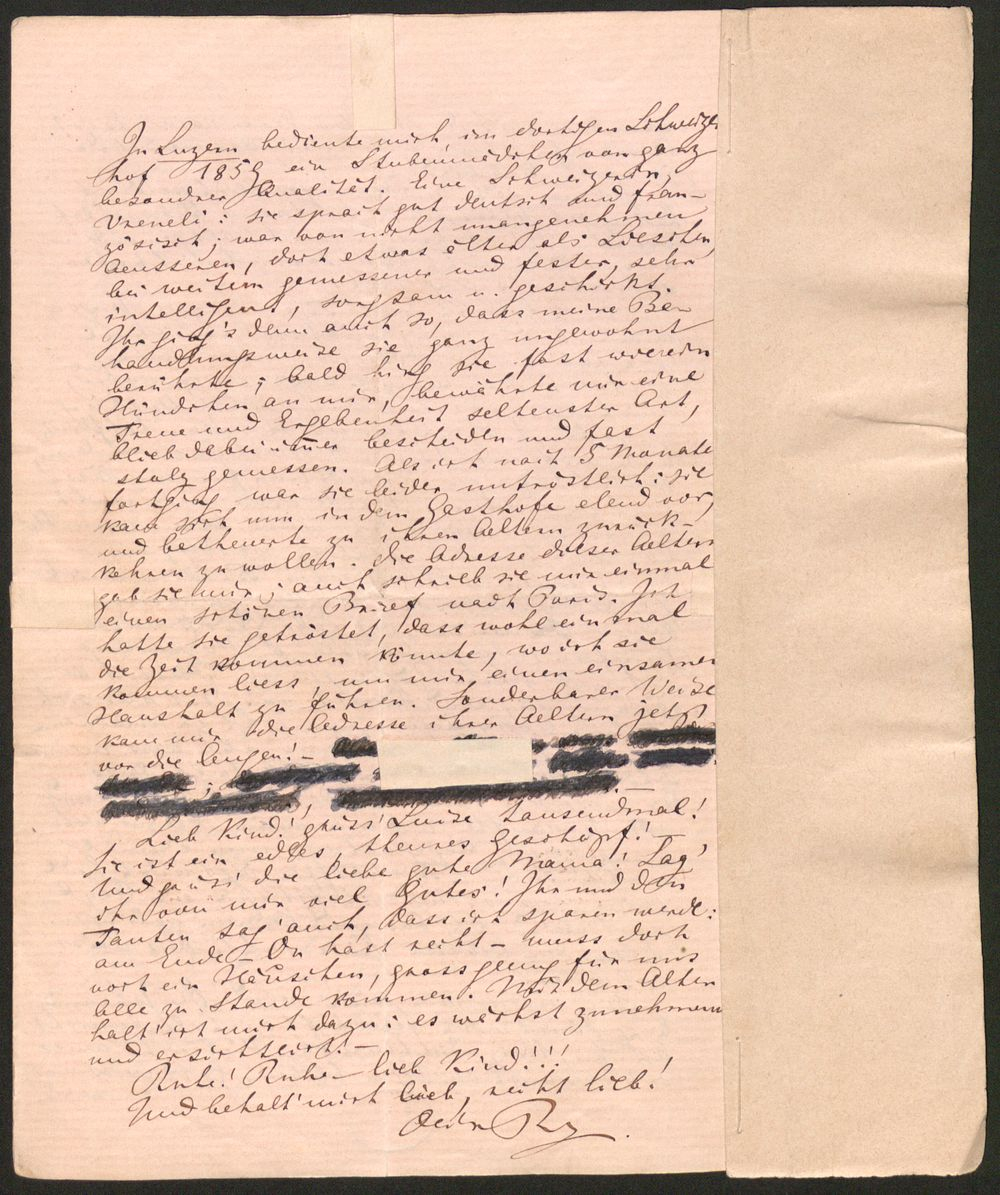 In Luzern bediente mich im dortigen Schweizer
hof 1859 ein Stubenmädchen von ganz
besondrer Qualität. Eine Schweizerin,
Vreneli: sie sprach gut deutsch und fran-
zösisch; war von nicht unangenehmen
Aeusseren, doch etwas älter als Lieschen
bei weitem gemessener und fester, sehr
intelligent, sorgsam u. geschickt.
Ihr ging's denn auch so, dass meine Be-
handlungsweise sie ganz ungewohnt
berührte; bald hing sie fast wie ein
Hündchen an mir, bewährte mir eine
Treue und Ergebenheit seltenster Art,
blieb dabei immer bescheiden und fast
stolz gemessen. Als ich nach 5 Monate
fortging war sie leider untröstlich: sie
kam sich nun in dem Gasthofe elend vor,
und betheuerte zu ihren Aeltern zurück-
kehren zu wollen. Die Adresse dieser Aeltern
gab sie mir; auch schrieb sie mir einmal
einen schönen Brief nach Paris. Ich
hatte sie getröstet, dass wohl einmal
die Zeit kommen könnte, wo ich sie
kommen liess, um mir einen einsamen
Haushalt zu führen. Sonderbarer Weise
kam mir die Adresse ihrer Aeltern jetzt
vor die Augen! –
Lieb Kind! grüss' Luise tausendmal!
Sie ist ein edles, theures Geschöpf!
Und grüss' die liebe gute Mama! Sag'
ihr von mir viel Gutes! Ihr und den
Tanten sag' auch, dass ich sparen werde:
am Ende – Du hast recht – muss doch
noch ein Häuschen, gross genug für uns
Alle zu Stande kommen. Mit dem Alten
halt' ich mich dazu: es wächst zunehmend
und ersichtlich! –
Ruhe! Ruhe – lieb Kind!!!
Und behalt' mich lieb, recht lieb!
Dein R